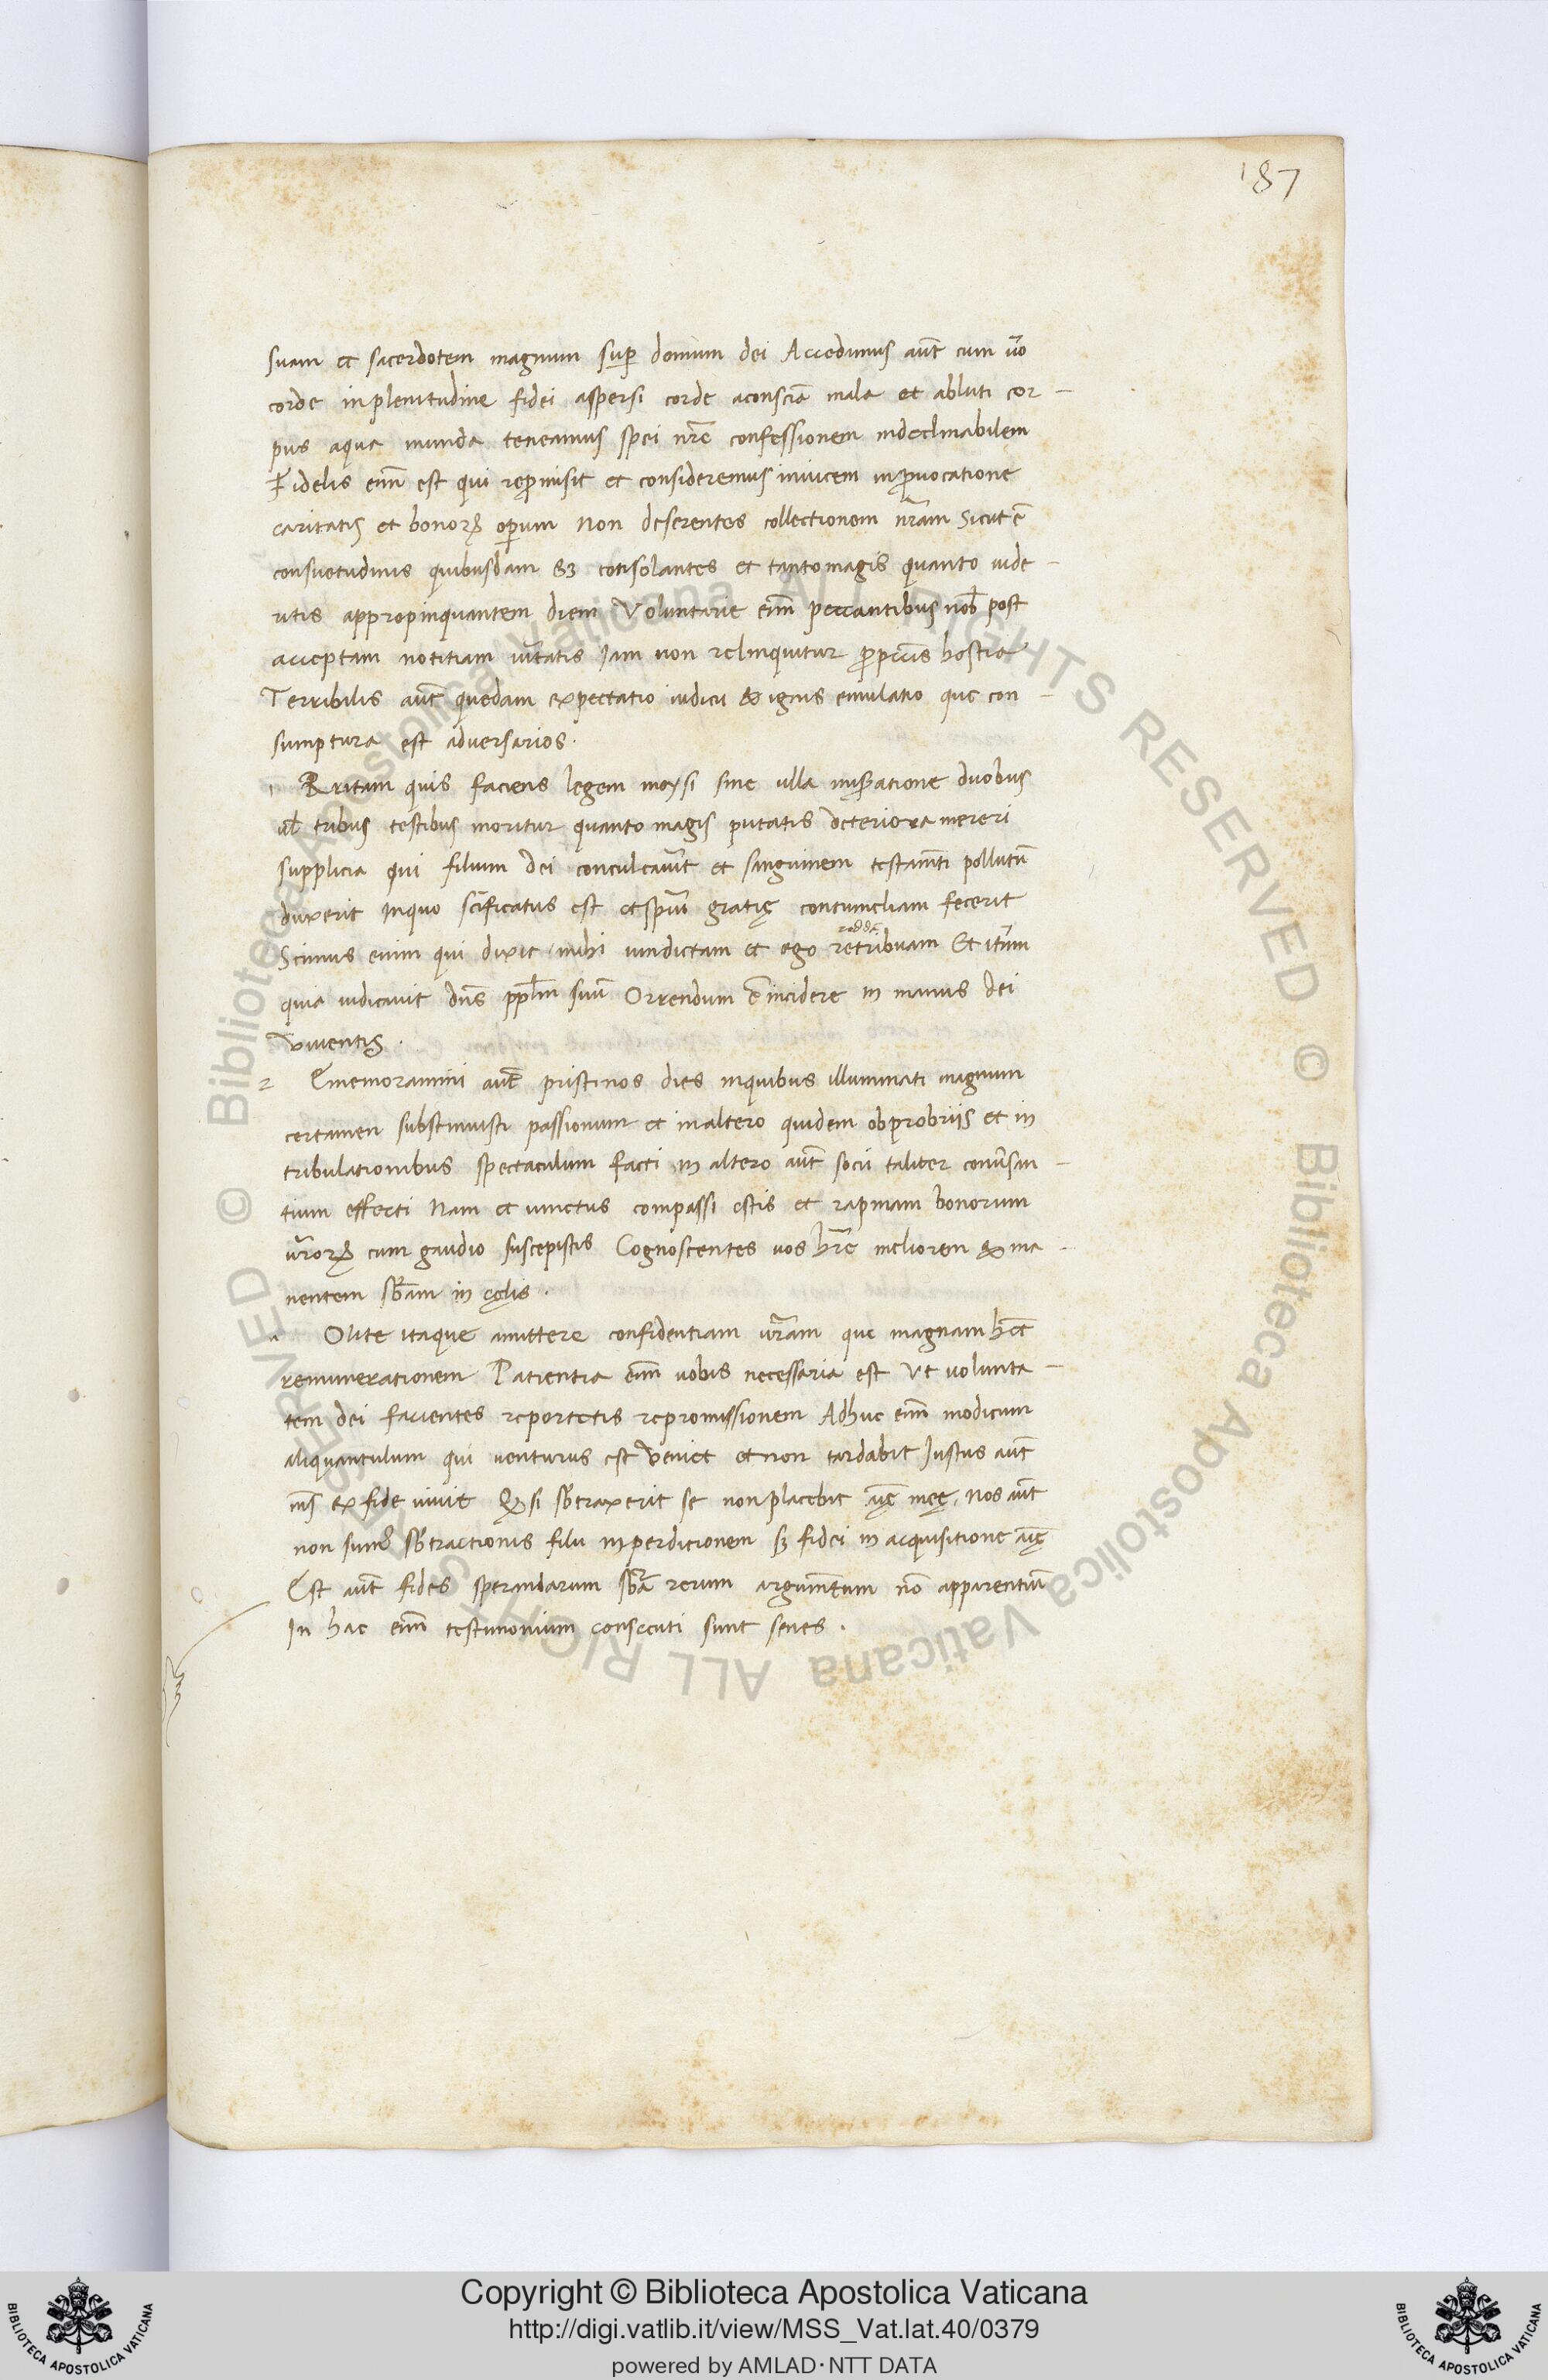 187
suam et sacerdotem magnum sup̄ domum dei Accedimus aut̄ cum ūo
corde inplenitudine fidei aspersi corde aconscīa mala et abluti cor-
pus aqua munda teneamus spei nr̄e confessionem indeclinabilem
Fidelis eīm est qui rep̄misit et consideremus inuicem inp̄uocatione
caritatis et bonorꝝ op̄um Non deserentes collectionem nr̄am sicut ē
consuetudinis quibusdam sꝫ consolantes et tantomagis quanto uide-
ritis appropinquantem diem Voluntarie eīm peccantibus nob̄ post
acceptam notitiam ūitatis Iam non relinquitur p̄ pcc̄is hostia
Terribilis aut̄ quedam expectatio iudicii & ignis emulatio que con-
sumptura est adversarios.
1 Rritam quis faciens legem moysi sine ulla mis̄atione duobus
ul̄ tribus testibus moritur quanto magis putatis deteriora mereri
supplicia qui filium dei conculcaūit et sanguinem testam̄ti pollutū
duxerit inquo sc̄ificatus est et sp̄ui gratię contumeliam fecerit
redda
Scimus enim qui dixit mihi uindictam et ego retribuam Et it̄um
quia iudicauit dn̄s pp̄lm suū Orrendum ē incidere in manus dei
viuentis.
2 Ememoramini aut̄ pristinos dies inquibus illuminati magnum
certamen substinuisti passionum et inaltero quidem obprobriis et in
tribulationibus spectaculum facti in altero aut̄ socii taliter conūsan-
tium effecti Nam et uinctus compassi estis et rapinam bonorum
ūrorꝝ cum gaudio suscepistis Cognoscentes uos hr̄e meliorem & ma-
nentem sb̄am in cęlis.
Olite itaque amittere confidentiam ūram que magnam h̄et
remunerationem Patientia eīm uobis necessaria est Ut uolunta-
tem dei facientes reportetis repromissionem Adhuc eīm modicum
aliquantulum qui uenturus est veniet et non tardabit Iustus aut̄
ms̄ ex fide uiuit Qđ si sb̄traxerit se non placebit aīę meę. Nos aut̄
non sumꝰ sb̄tractionis filii inperdicionem sꝫ fidei in acquisitione aīę
Est aut̄ fides sperandarum sb̄a rerum argum̄tum nō apparentiū
In hac eīm testimonium consecuti sunt senes.
Copyright © Biblioteca Apostolica Vaticana
http://digi.vatlib.it/view/MSS_Vat.lat.40/0379
powered by AMLAD·NTT DATA
BIBLIOTECA APOSTOLICA VATICANA
BIBLIOTECA APOSTOLICA VATICANA
© Biblioteca Apostolica Vaticana ALL RIGHTS RESERVED © Biblioteca Apostolica Vaticana ALL RIGHTS RESERVED